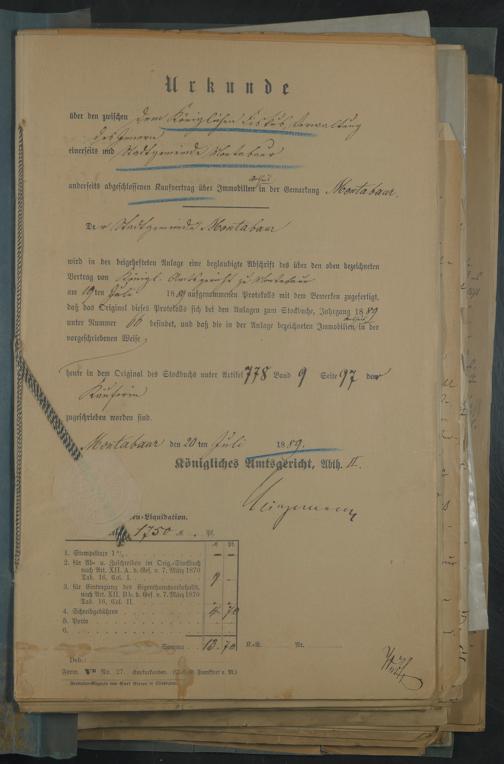 Urkunde
über den zwischen dem Königlichen Fiskus, Verwaltung
des Innern
einerseits und Stadtgemeinde Montabaur
anderseits abgeschlossenen Kaufvertrag über Immobilien in der Gemarkung Montabaur.
Der Stadtgemeinde Montabaur
wird in der beigehefteten Anlage eine beglaubigte Abschrift des über den oben bezeichneten
Vertrag von Königl. Amtsgericht zu Montabaur
am 19ten Juli 1889 aufgenommenen Protokolls mit dem Bemerken zugefertigt,
daß das Original dieses Protokolls sich bei den Anlagen zum Stockbuche, Jahrgang 1889
unter Nummer 66 befindet, und daß die in der Anlage bezeichneten Immobilien in der
vorgeschriebenen Weise
heute in dem Original des Stockbuchs unter Artikel 778 Band 9 Seite 97 der
Käuferin
zugeschrieben worden sind.
Montabaur den 20 ten Juli 1889.
Königliches Amtsgericht, Abth. II.
en-Liquidation.
1750
1. Stempeltaxe 1 %
2. für Ab- u. Zuschreiben im Orig.-Stockbuch
nach Art. XII. A. d. Ges. v. 7. März 1870
Tab. 16, Col. I. 9 —
3. für Eintragung des Eigenthumsvorbehalts,
nach Art. XII. B b. d. Ges. v. 7. März 1870
Tab. 16, Col. II.
4. Schreibgebühren 4 70
5. Porto
6.
Summa 13 70 K.-R. Nr.
Deb.:
Form. No. 27.